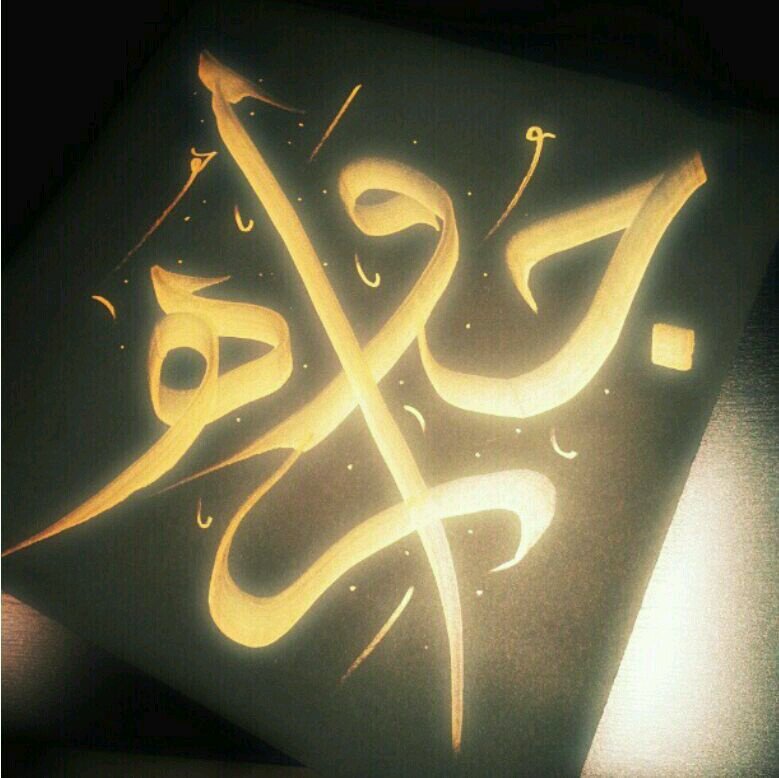 جواهر